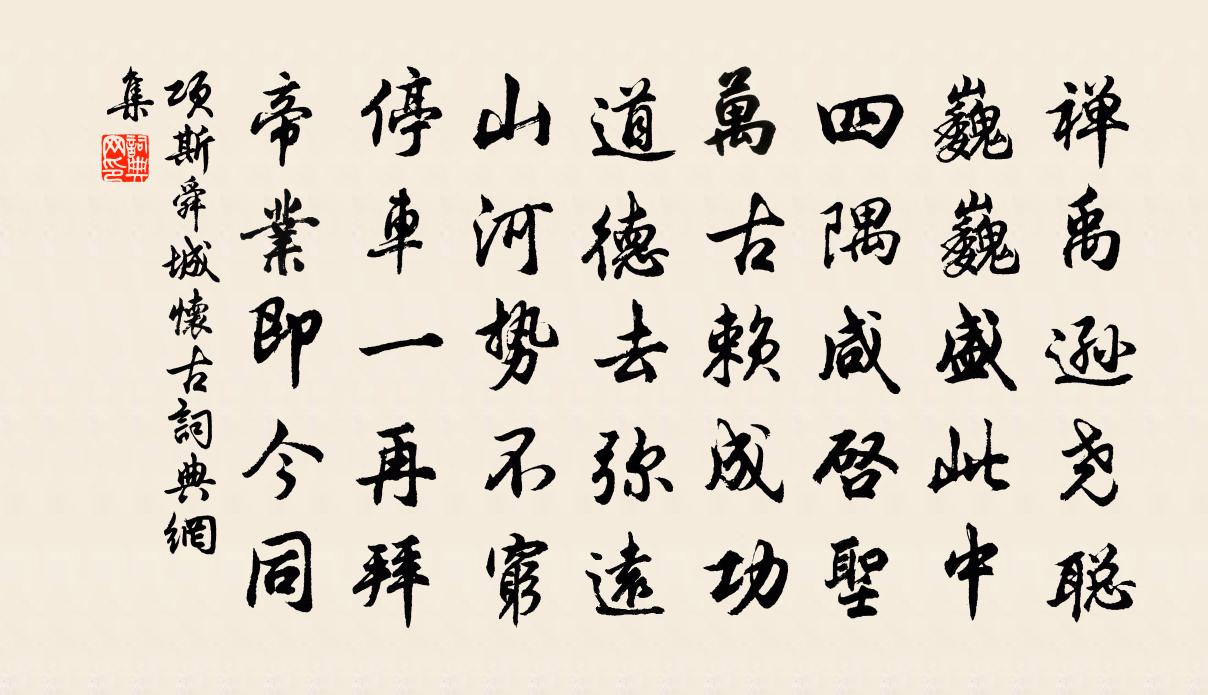 禅禹逊尧聪
巍巍盛此中
四隅咸启聖
萬古赖成功
道德去弥遠
山河势不窮
停車一再拜
帝業即今同
项斯舜城懷古詞典網
集
詞典网印